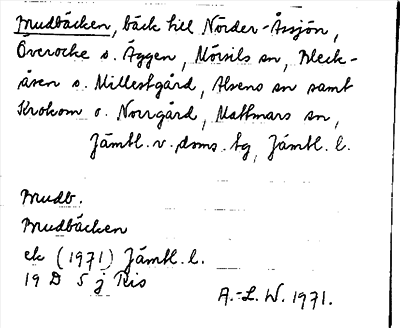 Mudbäcken, bäck till Nörder-Åssjön,
Överocke s. Äggen, Mörsils sn, Bleck-
åsen s. Millestgård, Alsens sn samt
Krokom o. Norrgård, Mattmars sn,
Jämtl. v. doms. tg, Jämtl. l.
Mudb.
Mudbäcken
ek (1971) Jämtl. l.
19 D 5 j Ris
A.-L. W. 1971.